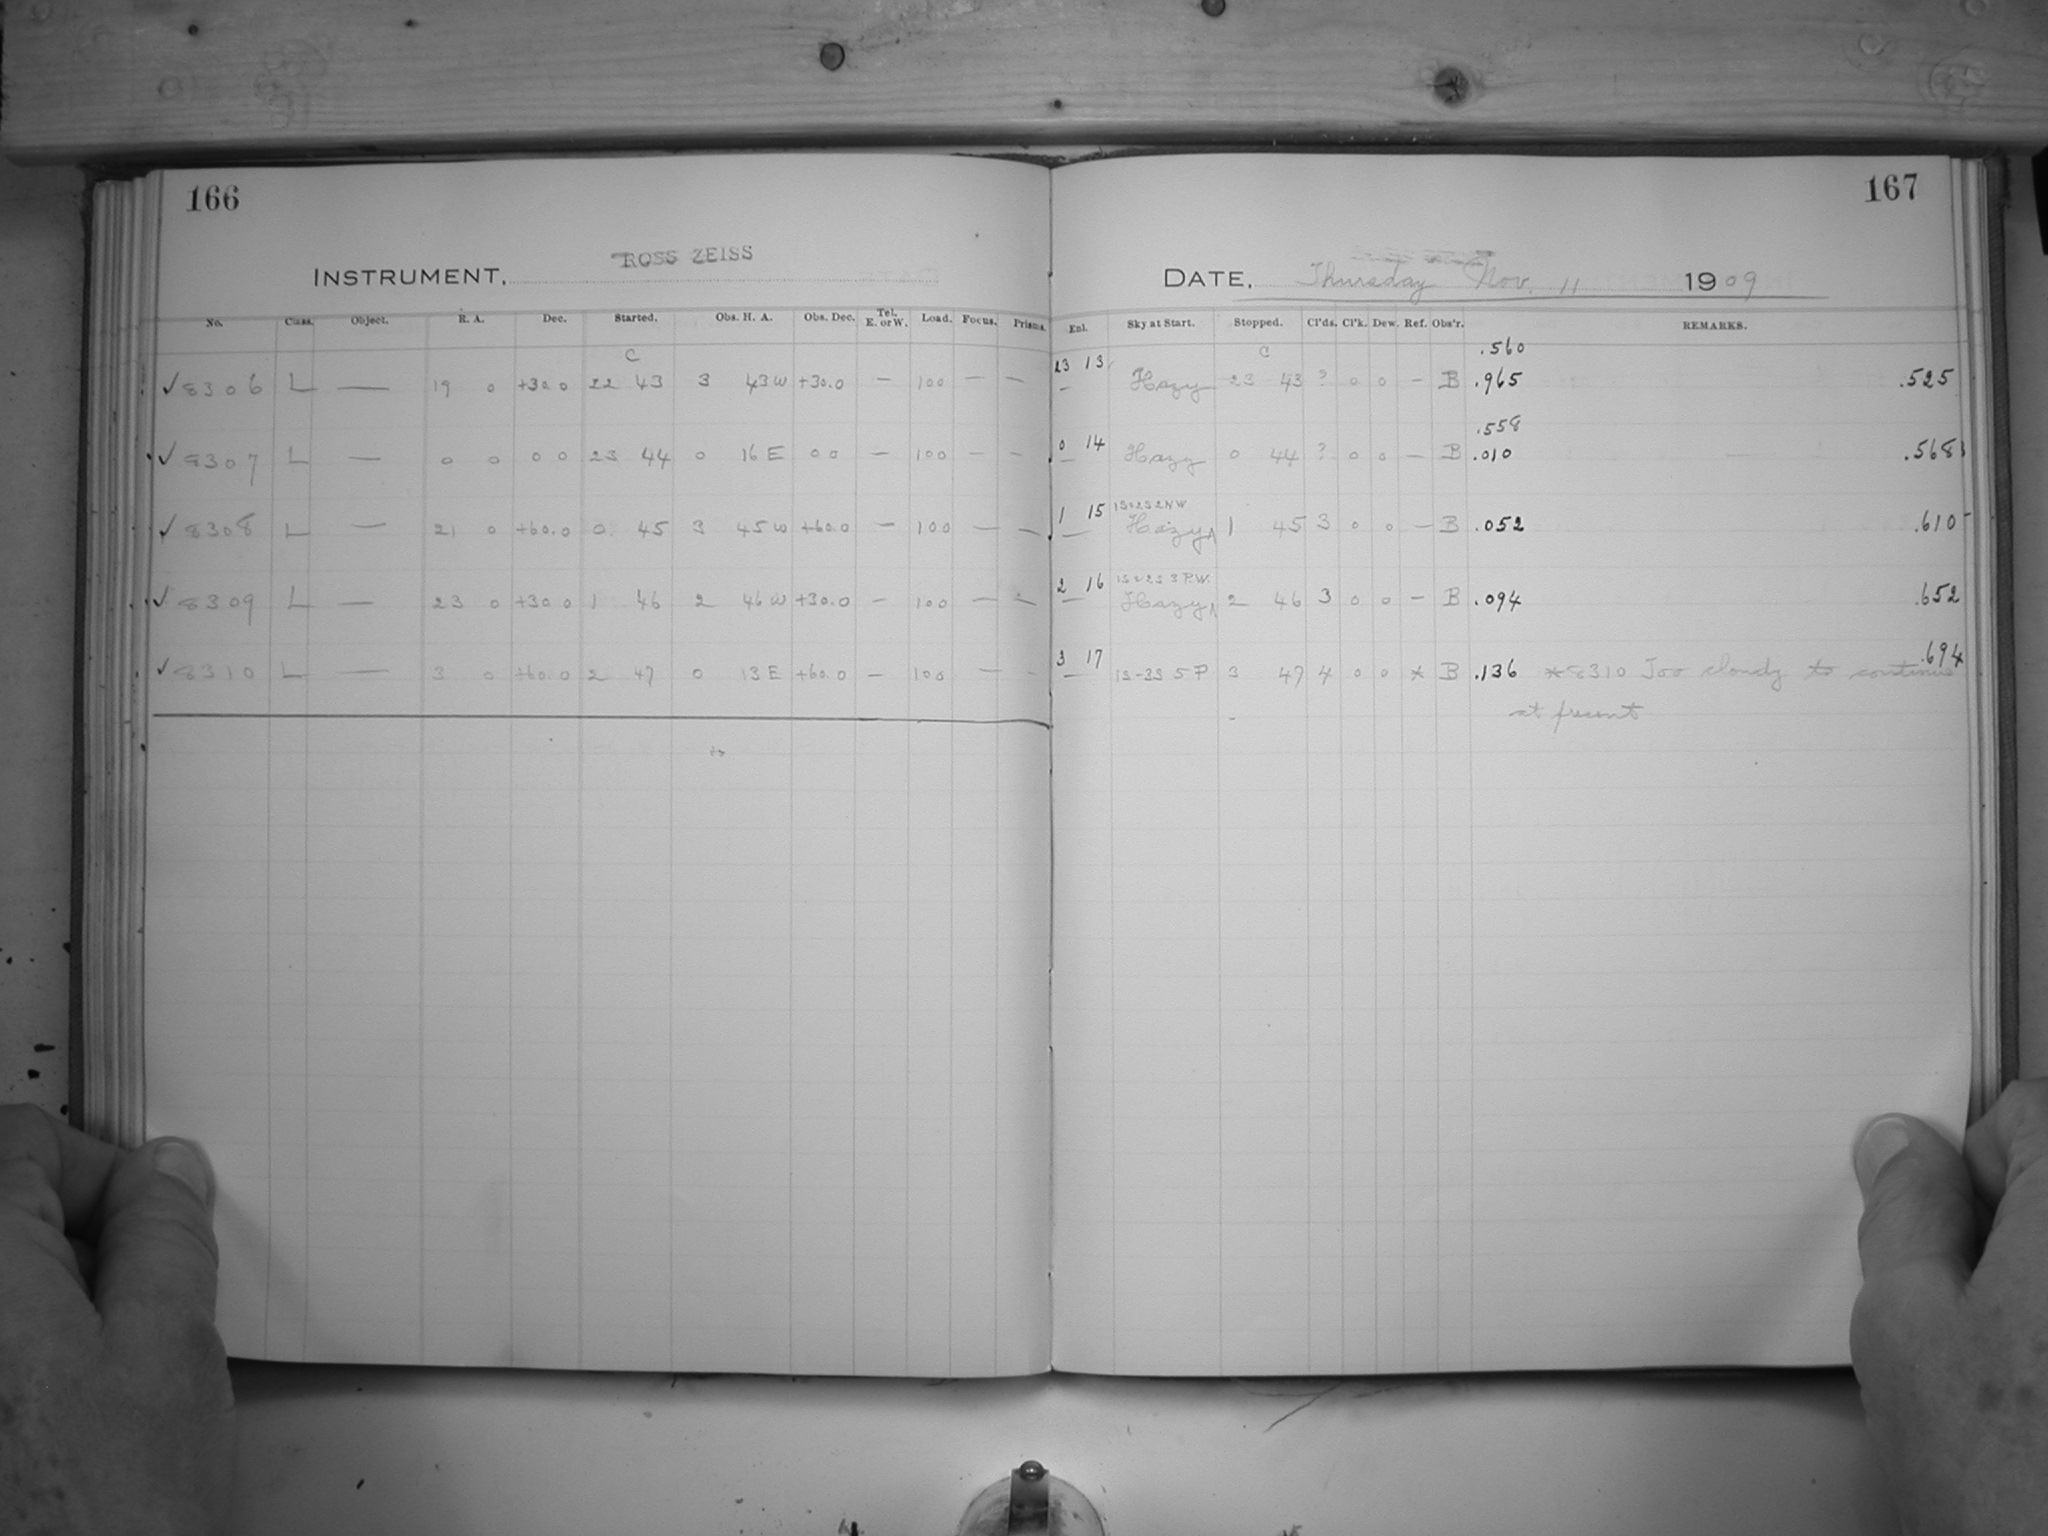 166
ROSS ZEISS
INSTRUMENT,
No. Class. Object. R. A. Dec. Started. Obs. H. A. Obs. Dec. Tel. E. or W. Load. Focus. Prisms.
C
✓ 8306 L — 19 0 +30.0 22 43 3 43 W +30.0 — 100 — —
✓ 8307 L — 0 0 0 0 23 44 0 16 E 0 0 — 100 — —
✓ 8308 L — 21 0 +60.0 0 45 3 45 W +60.0 — 100 — —
✓ 8309 L — 23 0 +30.0 1 46 2 46 W +30.0 — 100 — —
✓ 8310 L — 3 0 +60.0 2 47 0 13 E +60.0 — 100 — —
167
DATE, Thursday Nov. 11 1909
Enl. Sky at Start. Stopped. Cl'ds. Cl'k. Dew. Ref. Obs'r. REMARKS.
C .560
23 13
— Hazy 23 43 ? 0 0 — B .965 .525
.558
0 14
— Hazy 0 44 ? 0 0 — B .010 .568
1 15
— Hazy 1 45 3 0 0 — B .052 .610
2 16
— Hazy 2 46 3 0 0 — B .094 .652
3 17 .694
— 1S-3S 5 P 3 47 4 0 0 * B .136 * 8310 Too cloudy to continue
at present